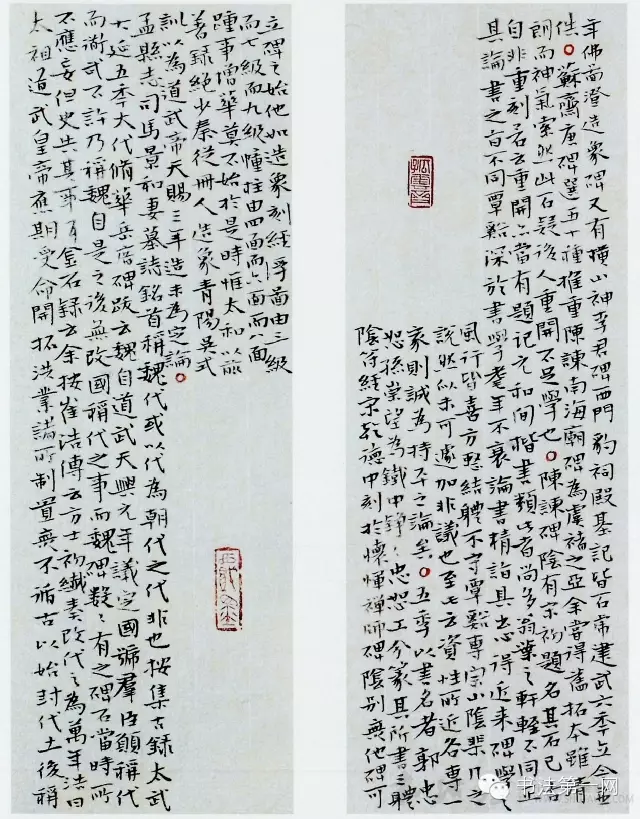 年佛啚澄造象碑又有橫山神李君碑西門豹祠殿基記皆石虎建武六年立今並
佚。蘇齋唐碑選五十種推重陳諫南海廟碑為虞褚之亞余嘗得舊拓本雖清
朗而神氣索然此石疑後人重開不足學也。陳諫碑陰有宋初題名其石已古
自非重刻若云重開亦當有題記元和間楷書類此者尚多翁葉之軒輊不同亦
其論書之旨不同覃谿深於書學耄年不衰論書精詣具出心得近來碑學之
風行皆喜方整結體不守覃谿專宗山陰棐几之
說然似未可遽加非議也至云資性所近各專一
家則誠為持平之論矣。五季以書名者郭忠
恕孫崇望為鐵中錚〻忠恕工今篆其所書三體
陰符經宋乾德中刻於懷惲禪師碑陰別無他碑可
立碑之始他如造象刻經浮啚由三級
而七級而九級幢柱由四面而六面而八面
踵事增華莫不始於是時惟太和以前
著錄絕少秦從卌人造象青陽吳式
訓以為道武帝天賜三年造未為定論。
孟縣志司馬景和妻墓誌銘首稱魏代或以代為朝代之代非也按集古錄太武
大延五年大代脩華岳廟碑跋云魏自道武天興元年議定國號羣臣願稱代
而道武不許乃稱魏自是之後無改國稱代之事而魏碑數〻有之碑石當時所
不應妄但史失其事耳金石錄云余按崔浩傳云方士祁纖奏改代之為萬年浩曰
太祖道武皇帝應期受命開拓洪業諸所制置無不循古以始封代土後稱
书法第一网